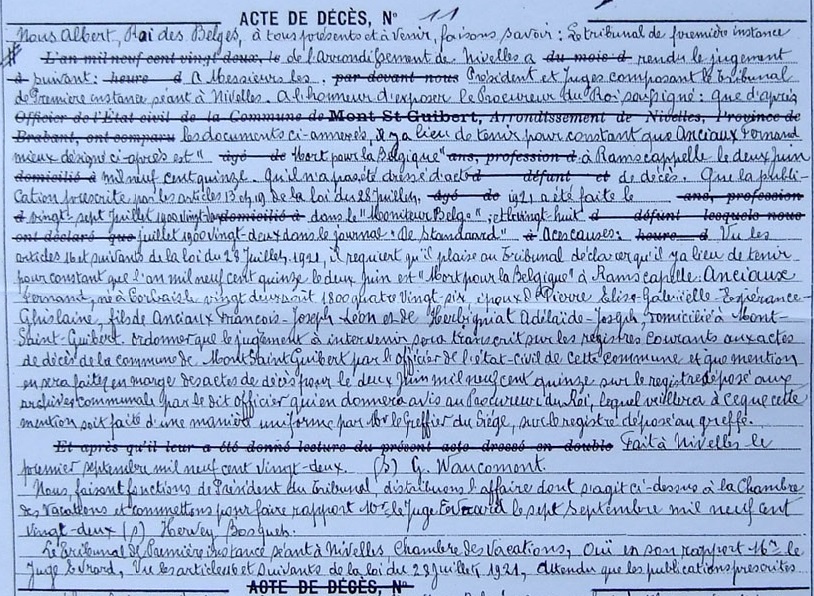 ACTE DE DÉCÈS, N° 11
Nous Albert, Roi des Belges, à tous présents et à venir, faisons savoir : Le tribunal de première instance
# L'an mil neuf cent vingt-deux, le de l'arrondissement de Nivelles a du mois d rendu le jugement
à suivant : heure d A Messieurs les par devant nous Président et Juges composant le Tribunal
de Première instance séant à Nivelles. A l'honneur d'exposer le Procureur du Roi soussigné : que d'après
Officier de l'État civil de la Commune de Mont-St-Guibert, Arrondissement de Nivelles, Province de
Brabant, ont comparu les documents ci-annexés, il y a lieu de tenir pour constant que Anciaux Fernand
mieux désigné ci-après est " âgé de Mort pour la Belgique" ans, profession d à Ramscappelle le deux Juin
domicilié à mil neuf cent quinze. Qu'il n'a pas été dressé d'acte d défunt et de décès. Que la publi-
cation prescrite par les articles 13 et 19 de la loi du 28 Juillet, âgé de 1921 a été faite le ans, profession
d vingt-sept Juillet 1900 vingt domicilié à dans le "Moniteur Belge", et le vingt-huit d défunt lesquels nous
ont déclaré que juillet 1900 vingt-deux dans le journal "De Standaard" à Ces causes : heure d Vu les
articles 16 et suivants de la loi du 28 Juillet, 1921, il requiert qu'il plaise au Tribunal déclarer qu'il y a lieu de tenir
pour constant que l'an mil neuf cent quinze le deux Juin est "Mort pour la Belgique" à Ramscapelle Anciaux
Fernand, né à Corbais le vingt deux août 1800 quatre vingt-six, époux de Pierre Elise-Gabrielle-Espérance-
Ghislaine, fils de Anciaux François-Joseph-Léon et de Herbigniat Adélaïde-Joseph, domicilié à Mont-
Saint-Guibert. ordonner que le jugement à intervenir sera transcrit sur les registres courants aux actes
de décès de la commune de Mont Saint Guibert par l'officier de l'état-civil de cette commune et que mention
en sera faite en marge des actes de décès pour le deux Juin mil neuf cent quinze sur le registre déposé aux
archives communales par le dit officier qui en donnera avis au Procureur du Roi, lequel veillera à ce que cette
mention soit faite d'une manière uniforme par Mr le Greffier du Siège, sur le registre déposé au greffe.
Et après qu'il leur a été donné lecture du présent acte dressé en double Fait à Nivelles le
premier septembre mil neuf cent vingt-deux. (s) G. Waucomont.
Nous, faisant fonctions de Président du Tribunal, distribuons l'affaire dont s'agit ci-dessus à la Chambre
des Vacations et commettons pour faire rapport Mr le Juge Evrard le sept Septembre mil neuf cent
vingt-deux (s) Hervey
Le Tribunal de Première instance séant à Nivelles, Chambre des Vacations, Ouï en son rapport Mr le
Juge Evrard, Vu les articles 16 et suivants de la loi du 28 Juillet 1921, Attendu que les publications prescrites
ACTE DE DÉCÈS, N°